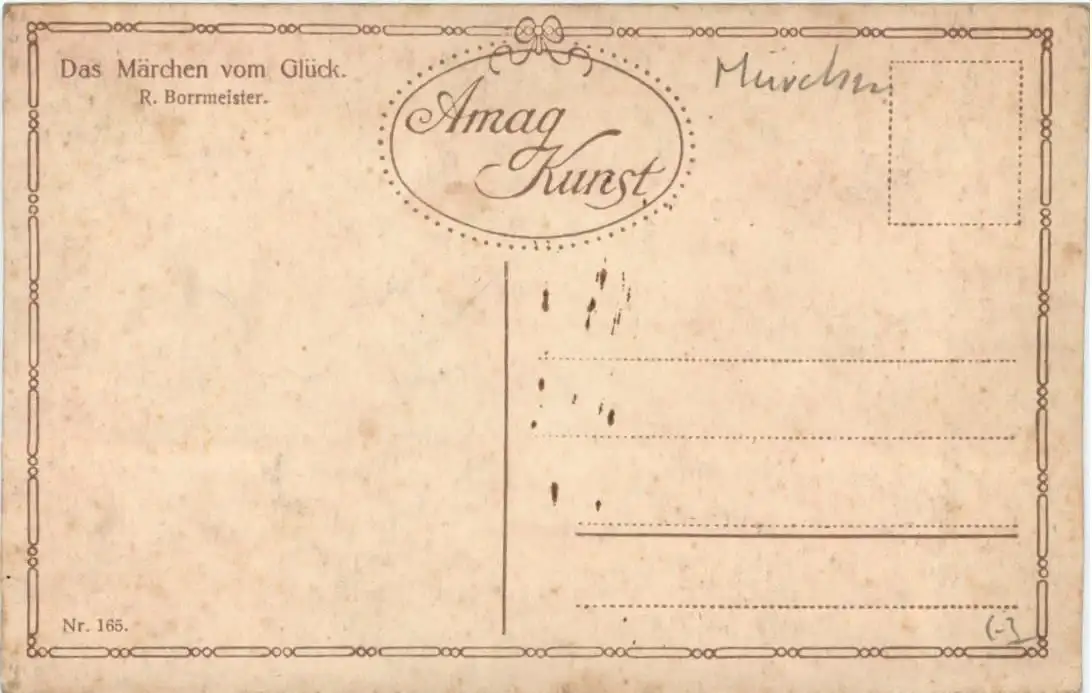 Das Märchen vom Glück.
R. Borrmeister.
Amag
Kunst
Nr. 165.